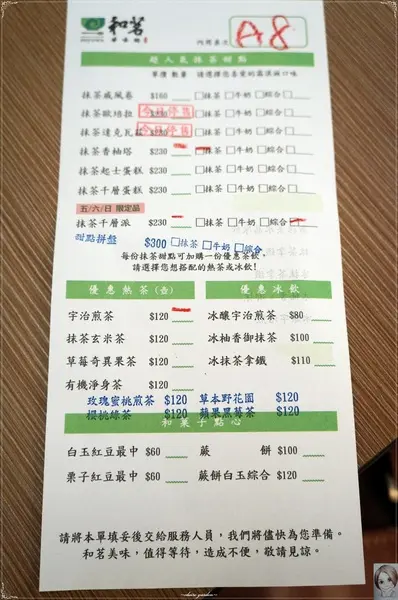 和茗
內用桌次 A8
超人氣抹茶甜點
單價 數量 請選擇您喜愛的霜淇淋口味
抹茶戚風卷 $160 □抹茶□牛奶□綜合
抹茶歐培拉 $230 今日停售 □牛奶□綜合
抹茶達克瓦茲 $230 今日停售 □牛奶□綜合
抹茶香柚塔 $230 □抹茶□牛奶□綜合
抹茶起士蛋糕 $230 □抹茶□牛奶□綜合
抹茶千層蛋糕 $230 □抹茶□牛奶□綜合
五/六/日 限定品
抹茶千層派 $230 □抹茶□牛奶□綜合
甜點拼盤 $300 □抹茶 □牛奶 □綜合
每份抹茶甜點可加購一份優惠茶飲,
請選擇您想搭配的熱茶或冰飲!
優惠熱茶(壺) 優惠冰飲
宇治煎茶 $120 冰釀宇治煎茶 $80
抹茶玄米茶 $120 冰柚香御抹茶 $100
草莓奇異果茶 $120 冰抹茶拿鐵 $110
有機淨身茶 $120
玫瑰蜜桃煎茶 $120 草本野花園 $120
櫻桃綠茶 $120 蘋果黑莓茶 $120
和菓子點心
白玉紅豆最中 $60 蕨 餅 $100
栗子紅豆最中 $60 蕨餅白玉綜合 $120
請將本單填妥後交給服務人員，我們將儘快為您準備。
和茗美味，值得等待，造成不便，敬請見諒。